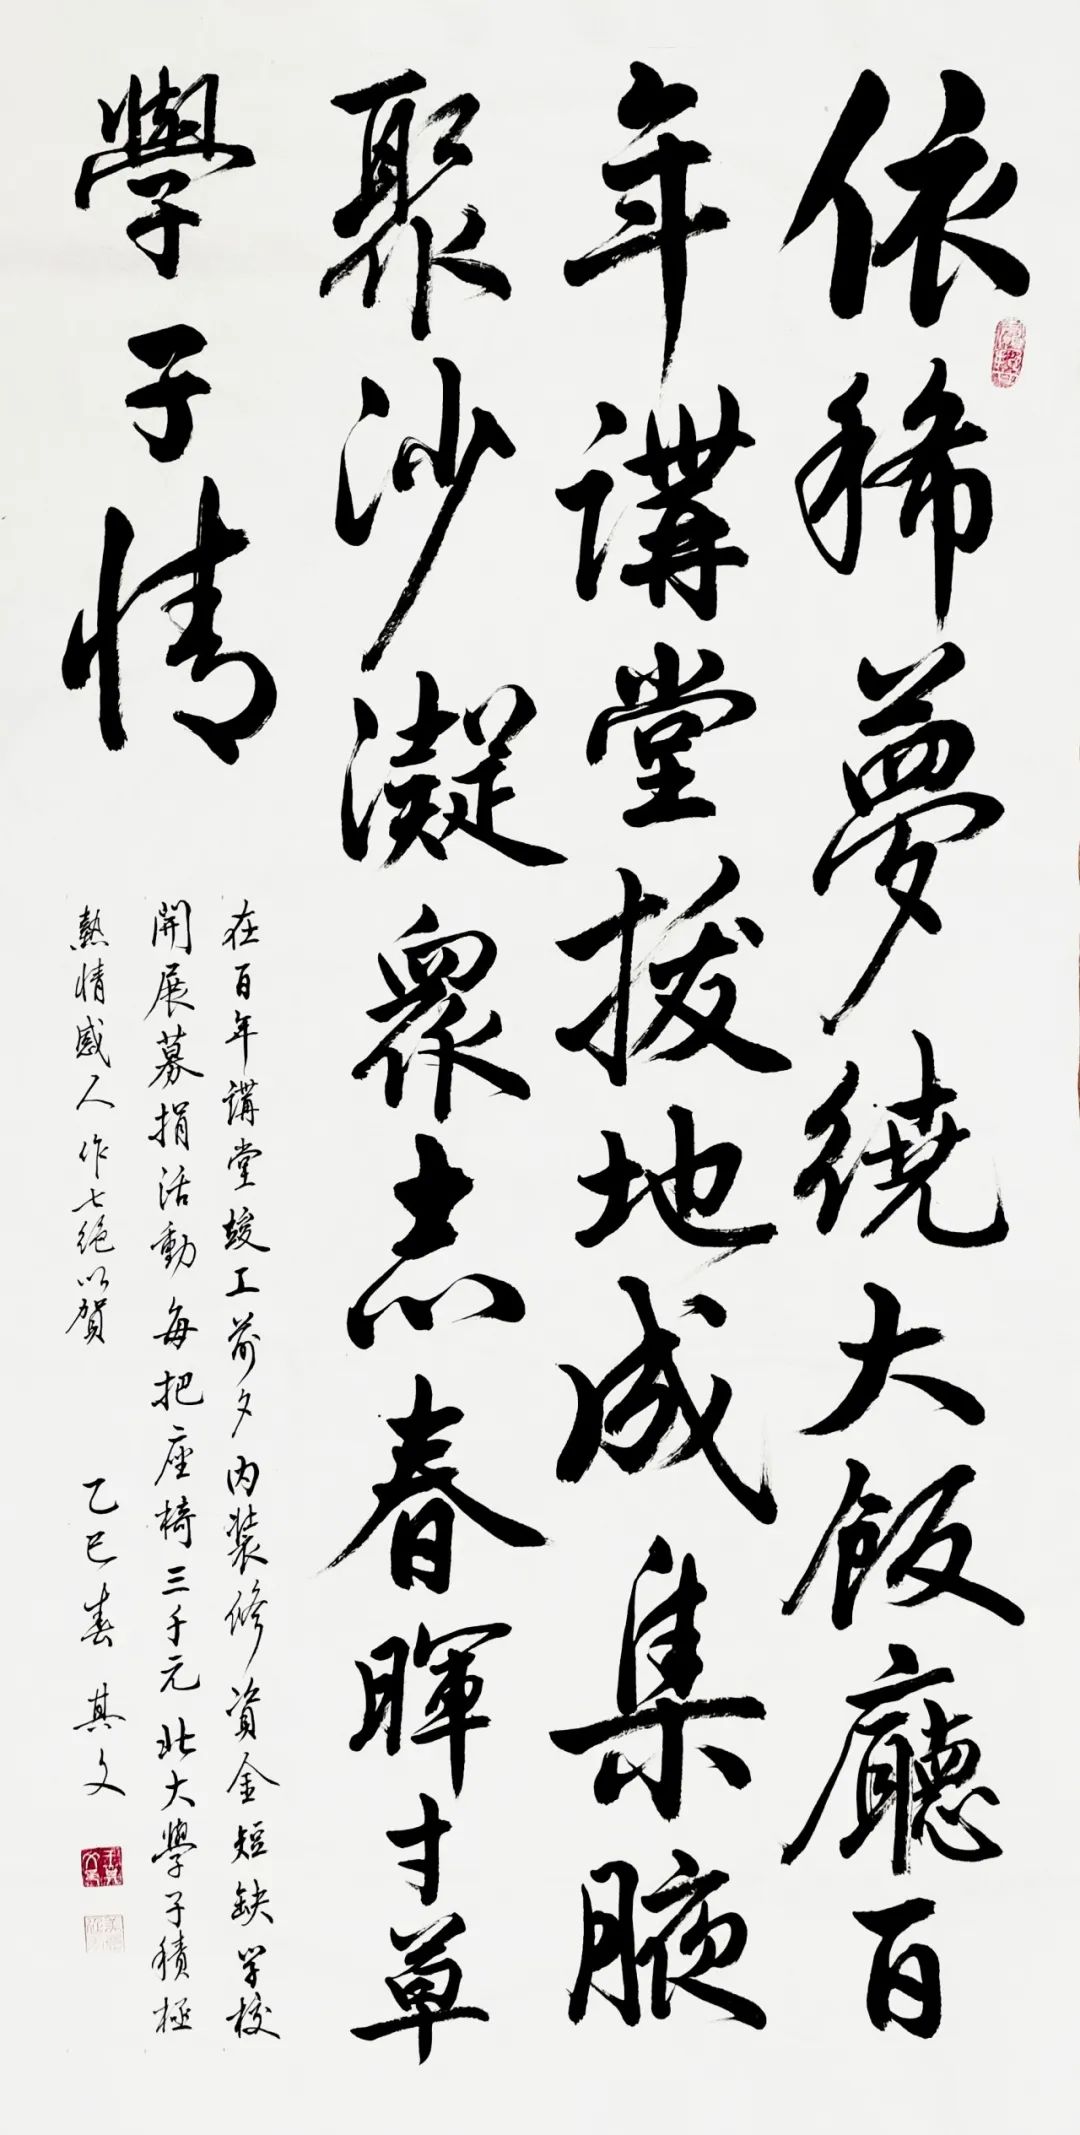 依稀夢繞大飯廳百
年講堂拔地成集腋
聚沙凝衆志春暉寸草
學子情
在百年講堂竣工前夕内裝修資金短缺学校
開展募捐活動每把座椅三千元北大學子積極
熱情感人作七絶以賀 乙巳春 其文